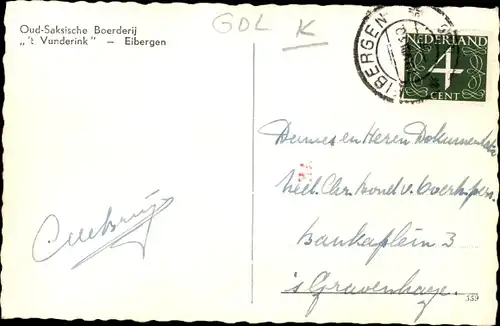 Oud-Saksische Boerderij
„'t Vunderink" — Eibergen
GDL K
EIBERGEN
NEDERLAND
4
CENT
Dames en Heren Dokumentatie
Ned. Chr. Bond v. Overh. pers.
Bankaplein 3
's Gravenhage.
559